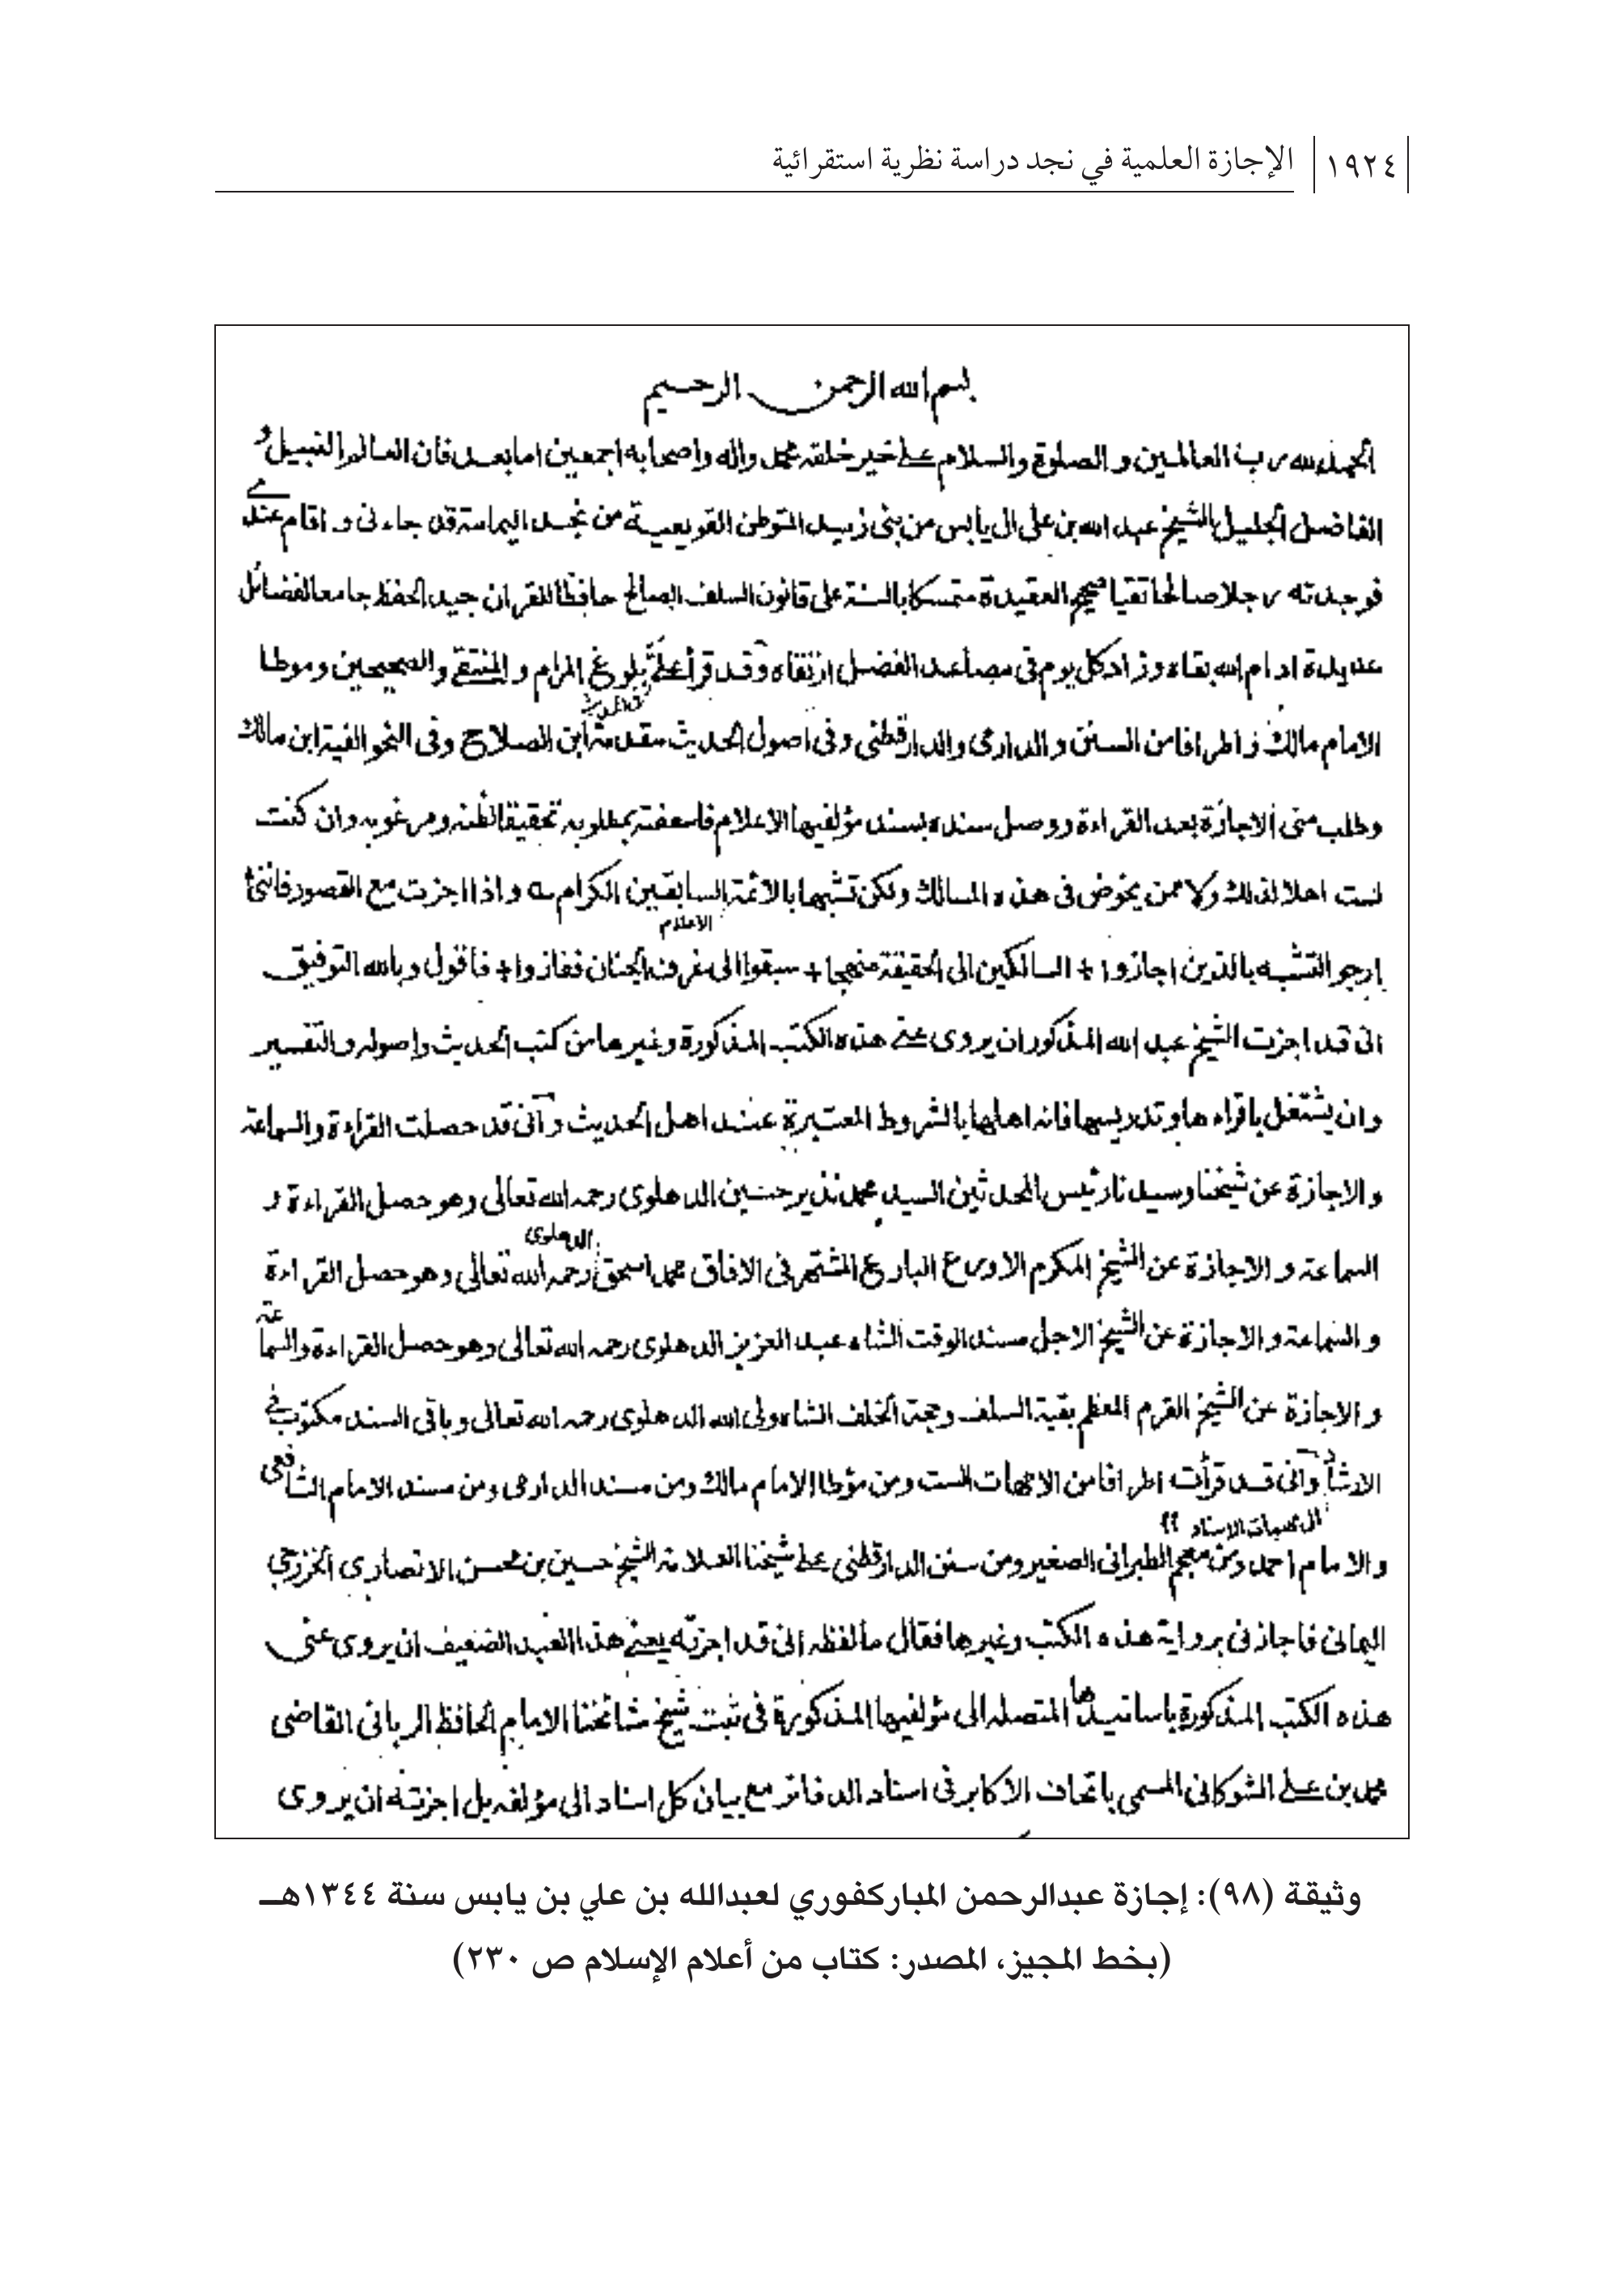 ١٩٢٤
الإجازة العلمية في نجد دراسة نظرية استقرائية
بسم الله الرحمن الرحيم
الحمد لله رب العالمين و الصلوة والسلام على خير خلقه محمد واله واصحابه اجمعين اما بعد فان العالم النبيل و
الفاضل الجليل الشيخ عبد الله بن علی ال يابس من بنی زيد المتوطن القويعية من نجد اليمامة قد جاءنی و اقام عندی
فوجدته رجلا صالحا تقيا صحيح العقيدة متمسكا بالسنة علی قانون السلف الصالح حافظا للقران جيد الحفظ جامعا لفضائل
عديدة ادام الله بقاه وزاد كل يوم فی مصاعد الفضل ارتقاه وقد قرأ علی بلوغ المرام و المنتقے والصحيحين وموطا
الامام مالك و اطرافا من السنن و الدارمی والدارقطنی وفی اصول الحديث مقدمة ابن الصلاح وفی النحو الفية ابن مالك
وطلب منی الاجازة بعد القراءة ووصل سنده بسند مؤلفيها الاعلام فاسعفته بمطلوبه تحقيقا لظنه ومرغوبه وان كنت
لست اهلا لذلك ولا ممن يخوض فی هذه المسالك ولكن تشبها بالائمة السابقين الكرام واذا اجزت مع القصور فاننی
الاعلام
ارجو التشبه بالذين اجازوا + السالكين الی الحقيقة منهجا + سبقوا الی غرف الجنان ففازوا + فاقول وبالله التوفيق
انی قد اجزت الشيخ عبد الله المذكور ان يروی عنے هذه الكتب المذكورة وغيرها من كتب الحديث واصوله والتفسير
وان يشتغل باقراءها وتدريسها فانه اهلها بالشروط المعتبرة عند اهل الحديث وانی قد حصلت القراءة والسماعة
والاجازة عن شيخنا وسيدنا رئيس المحدثين السيد محمد نذير حسين الدهلوی رحمه الله تعالی وهو حصل القراءة و
السماعة و الاجازة عن الشيخ المكرم الاورع البارع المشتهر فی الافاق محمد اسحق الدهلوی رحمه الله تعالی وهو حصل القراءة
و السماعة و الاجازة عن الشيخ الاجل مسند الوقت الشاه عبد العزيز الدهلوی رحمه الله تعالی وهو حصل القراءة والسماعة
و الاجازة عن الشيخ القرم المعظم بقية السلف وحجة الخلف الشاه ولی الله الدهلوی رحمه الله تعالی وباقی السند مكتوب فے
الارشاد وانی قد قرأت اطرافا من الامهات الست ومن مؤطا الامام مالك ومن مسند الدارمی ومن مسند الامام الشافعی
الی مهمات الاسناد
والامام احمد ومن معجم الطبرانی الصغير ومن سنن الدارقطنی علے شيخنا العلامة الشيخ حسين بن محسن الانصاری الخزرجی
اليمانی فاجازنی برواية هذه الكتب وغيرها فقال ما لفظه انی قد اجزته يعنے هذا العبد الضعيف ان يروی عنی
هذه الكتب المذكورة باسانيدها المتصلة الی مؤلفيها المذكورة فی ثبت شيخ مشائخنا الامام الحافظ الربانی القاضی
محمد بن علے الشوكانی المسمی باتحاف الاكابر فی اسناد الدفاتر مع بيان كل اسناد الی مؤلفه بل اجزته ان يروی
وثيقة (٩٨): إجازة عبدالرحمن المباركفوري لعبدالله بن علي بن يابس سنة ١٣٤٤هـ
(بخط المجيز، المصدر: كتاب من أعلام الإسلام ص ٢٣٠)